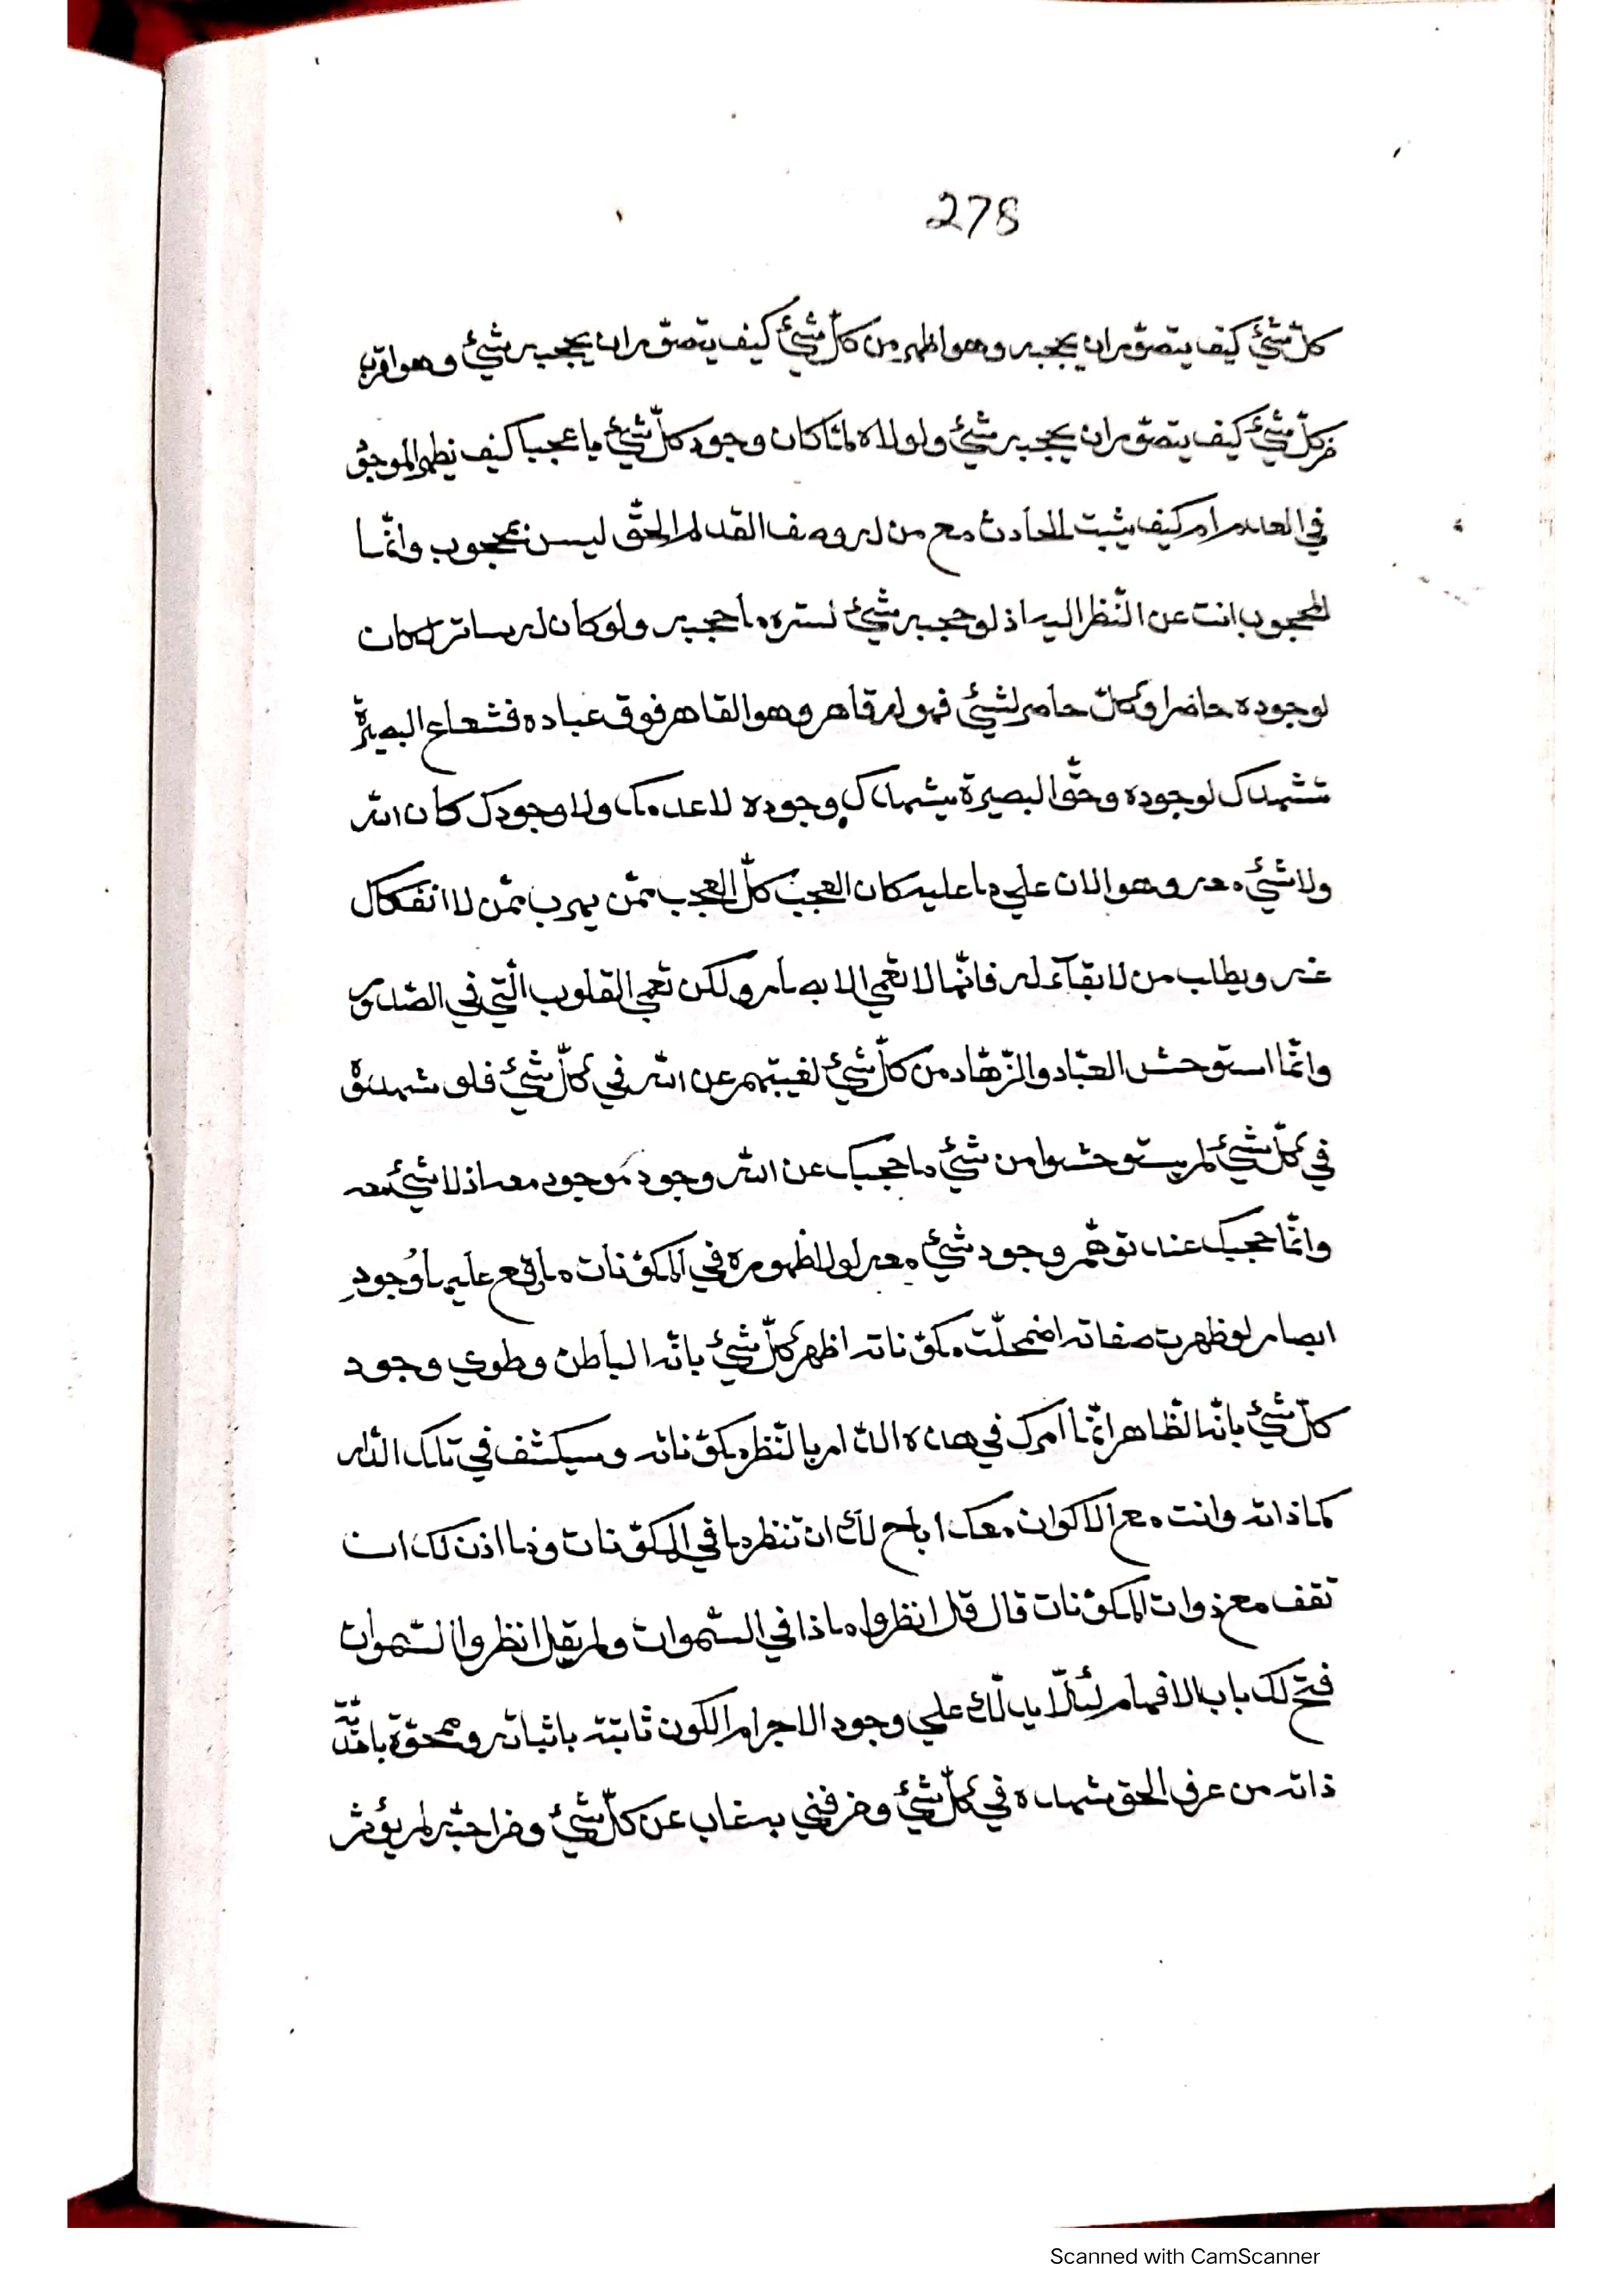 278
كلّ شيئ كيف يتصوّر ان يحجبه وهو اظهر من كلّ شيئ كيف يتصوّر ان يحجبه شيئ وهو اقرب
من كلّ شيئ كيف يتصوّر ان يحجبه شيئ ولولاه لما كان وجود كلّ شيئ يا عجبا كيف يظهر الموجود
في العدم ام كيف يثبت الحادث مع من له وصف القدم الحقّ ليس بمحجوب وانّما
المحجوب انت عن النّظر اليه اذ لو حجبه شيئ لستره ما حجبه ولو كان له ساتر لكان
لوجوده حاصرا وكلّ حاصر لشيئ فهو له قاهر وهو القاهر فوق عباده فشعاع البصيرة
تشهدك لوجوده وحقّ البصيرة يشهدك وجوده لا عدمك ولا وجودك كان الله
ولا شيئ معه وهو الان علي ما عليه كان العجب كلّ العجب ممّن يهرب ممّن لا انفكاك
عنه ويطلب من لا بقآء له فانّها لا تعمي الابصار ولكن تعمي القلوب الّتي في الصّدور
وانّما استوحش العبّاد والزّهّاد من كلّ شيئ لغيبتهم عن الله في كلّ شيئ فلو شهدوه
في كلّ شيئ لم يستوحشوا من شيئ ما حجبك عن الله وجود موجود معه اذ لا شيئ معه
وانّما حجبك عنه توهّم وجود شيئ معه لولا ظهوره في المكوّنات ما وقع عليها وجود
ابصار لو ظهرت صفاته اضمحلّت مكوّناته اظهر كلّ شيئ بانّه الباطن وطوي وجود
كلّ شيئ بانّه الظّاهر انّما امرك في هذه الدّار بالنّظر مكوّناته وسيكشف في تلك الدّار
كما ذاته وانت مع الاكوان معك اباح لك ان تنظر ما في المكوّنات وما اذن لك ان
تقف مع ذوات المكوّنات قال قل انظروا ماذا في السّموات ولم يقل انظروا السّموات
فتح لك باب الافهام لئلّا يدلّك علي وجود الاجرام الكون ثابتة باثباته وممحوّة باحدّيّة
ذاته من عرف الحق شهده في كلّ شيئ ومن فني به غاب عن كلّ شيئ ومن احبّه لم يؤثر
Scanned with CamScanner